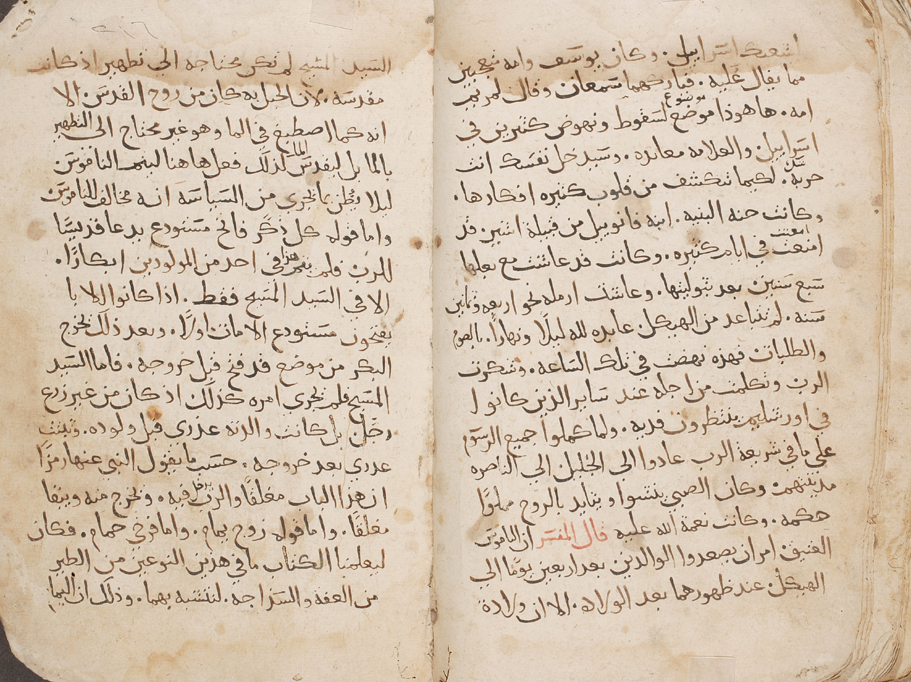 لشعبك اسراييل. وكان يوسف وامه يتعجبين
مما يقال عليه. فباركهما سمعان وقال لمريم
امه. ها هوذا موضوع لسقوط ونهوض كثيرين في
اسراييل. والعلامه معانده. وسيدخل نفسك انت
حربة. لكيما تنكشف من قلوب كثيره افكارها.
وكانت حنه النبيه. ابنه فانوييل من قبيلة اشير. قد
في ايام كثيره. وكانت قد عاشت مع بعلها
سبع سنين بعد بتوليتها. وعاشت ارمله نحو اربعه وثمانين
سنه. لم تتباعد من الهيكل عابده لله ليلًا ونهارًا. بالصوم
والطلبات فهذه نهضت في تلك الساعه. وشكرت
الرب وتكلمت من اجله عند ساير الذين كانوا
في اورشليم ينتظرون فديه. ولما كملوا جميع الرسوم
على ما في شريعة الرب عادوا الى الجليل الي الناصره
مدينتهم. وكان الصبي ينشوا ويتايد بالروح مملوًا
حكمه. وكانت نعمة الله عليه قال المفسر ان الناموس
العتيق امر ان يصعدوا الوالدين بعد اربعين يومًا الي
الهيكل عند ظهورهما بعد الولاده. الا ان ولادة
السيد المسيح لم تكن محتاجه الي تطهير اذ كانت
مقدسه. لان الحبل به كان من روح القدس. الا
انه كما اصطبغ في الما وهو غير محتاج الى التطهير
بالما بل ليقدس الما كذلك فعل هاهنا ليتمم الناموس
ليلا يظن بما يجري من السياسة انه مخالف للناموس
واما قوله كل ذكر فاتح مستودع يدعا قديسًا
للرب فلم يتم هذا في احد من المولودين ابكارًا.
الا في السيد المسيح فقط. اذا كانوا الابا
يفتحون مستودع الامهات اولًا. وبعد ذلك يخرج
البكر من موضع قد فتح قبل خروجه. فاما السيد
المسيح فلم يجري امره كذلك اذ كان من غير زرع
رجل بل كانت والدته عذري قبل ولوده. وثبتت
عذري بعد خروجه. حسب ما يقول النبي عنها رمزًا
ان هذا الباب مغلقًا والرب يدخل فيه. ويخرج منه ويبقا
مغلقًا. واما قوله زوج يمام. واما فرخي حمام. فكان
ليعلمنا الكتاب ما في هذين النوعين من الطير
من العفه والسداجه. لنتشبه بهما. وذلك ان اليمام